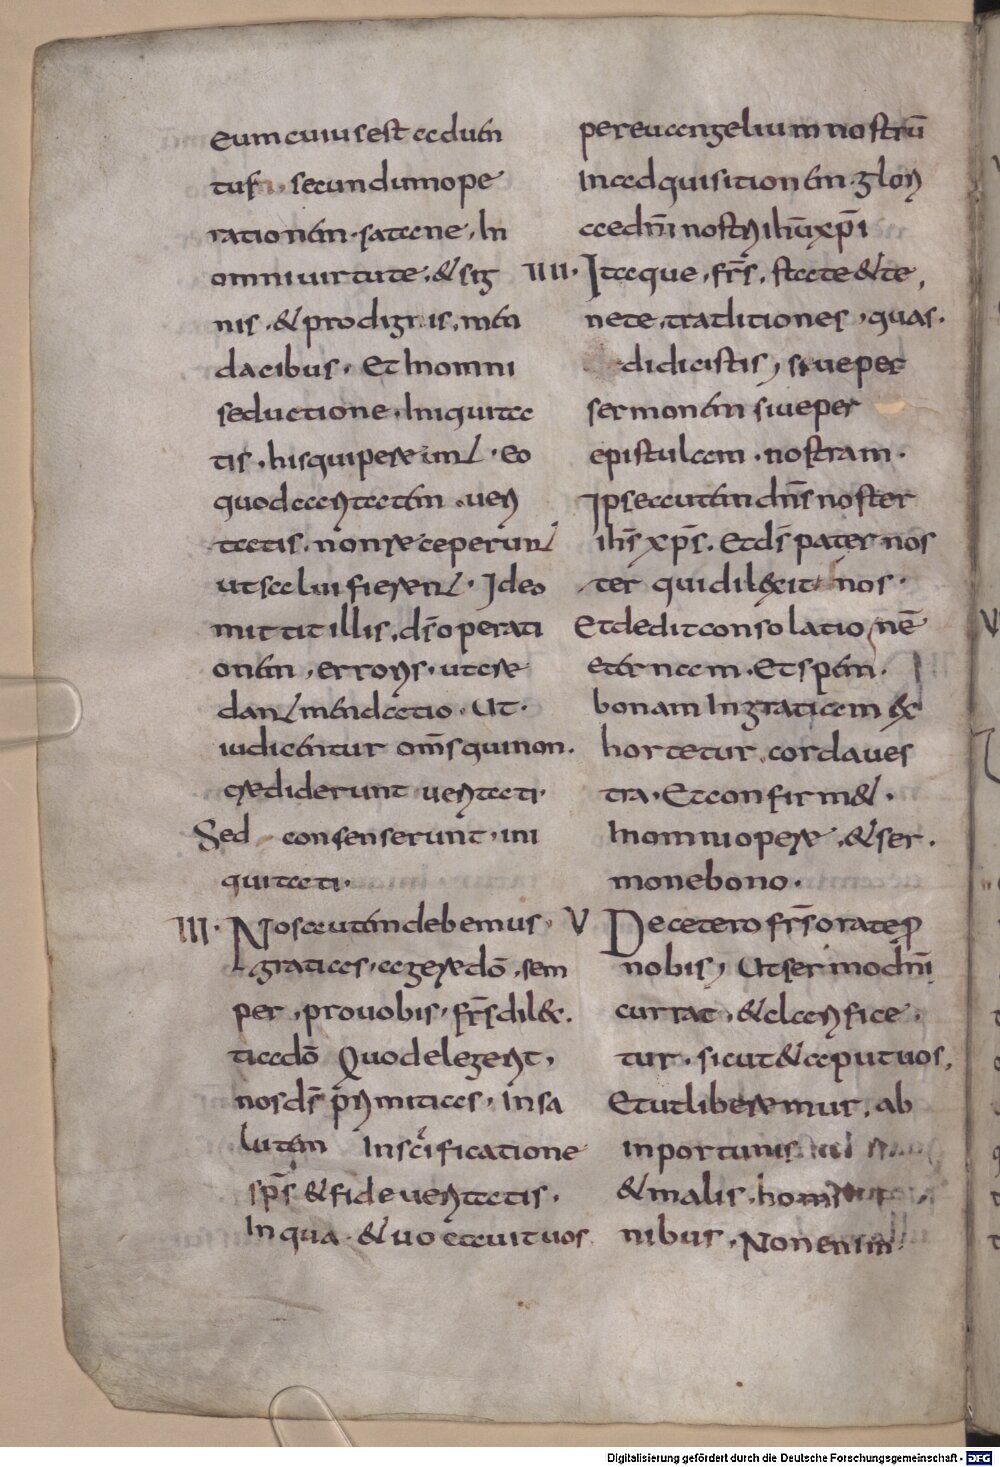 eum cuius est aduen
tus, secundum ope
rationem satane, In
omni uirtute, & sig
nis, & prodigiis, men
dacibus. Et In omni
seductione, Iniquita
tis, his qui pereunt. Eo
quod caritatem ueri
tatis, non receperunt
ut salui fierent. Ideo
mittit illis, d̄s operati
onem, erroris, ut cre
dant mendatio. Ut
iudicentur om̄s qui non
crediderunt ueritati.
Sed consenserunt, ini
quitati.
III. Nos autem debemus
gratias, agere dō, sem
per, pro uobis, fr̄s dil&
ti a dō Quod elegerit,
nos d̄s primitias, In sa
lutem In sc̄ificatione
sp̄s & fide ueritatis.
In qua & uocauit uos
per euangelium nostrū
In adquisitionem glori
ae dn̄i nostri ihū xp̄i
IIII. Itaque, fr̄s, state & te
nete, traditiones, quas
didicistis, siue per
sermonem siue per
epistulam nostram.
Ipse autem dn̄s noster
ih̄s xp̄s. Et d̄s pater nos
ter qui dilexit nos.
Et dedit consolationē
eternam. Et spem
bonam In gratia. Ex
hortetur corda ues
tra. Et confirm&.
In omni opere, & ser
mone bono.
V De cetero fr̄s orate ꝓ
nobis, Ut sermo dn̄i
currat, & clarifice
tur, sicut & aput uos,
Et ut liberemur, ab
inportunis
& malis, homi
nibus, Non enim
Digitalisierung gefördert durch die Deutsche Forschungsgemeinschaft - DFG